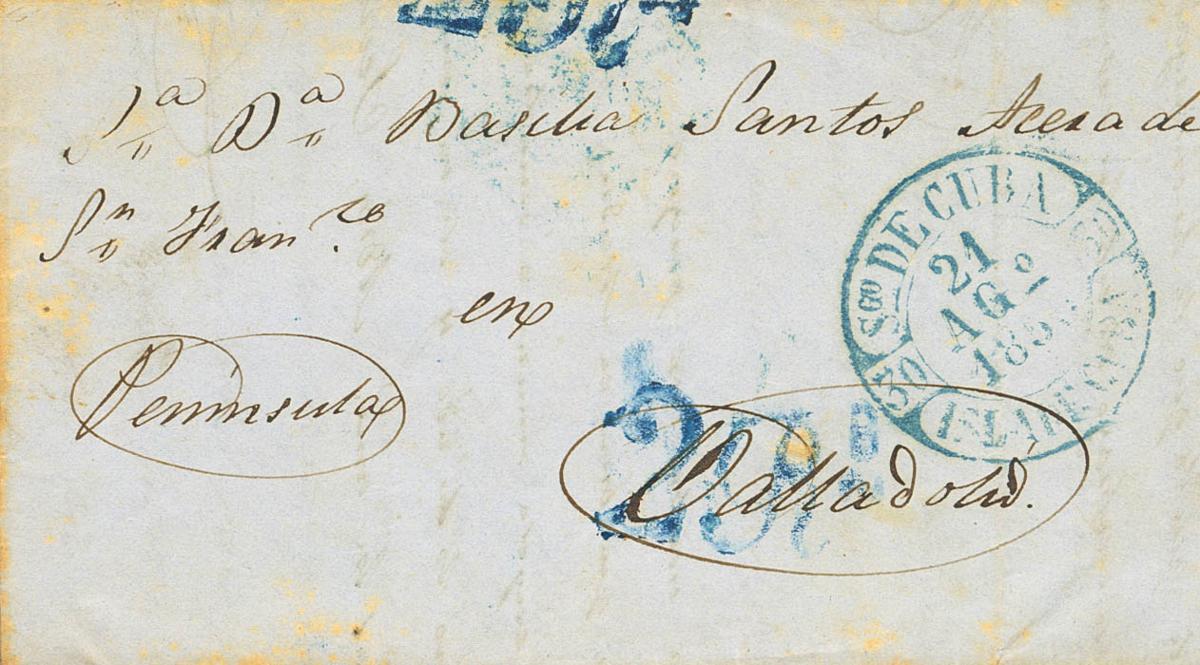 Sª Dª Basilia Santos Acera de
Sⁿ Franco
en
Península
Valladolid.
Sgo DE CUBA
21
AGo
185
ISLA DE CUBA